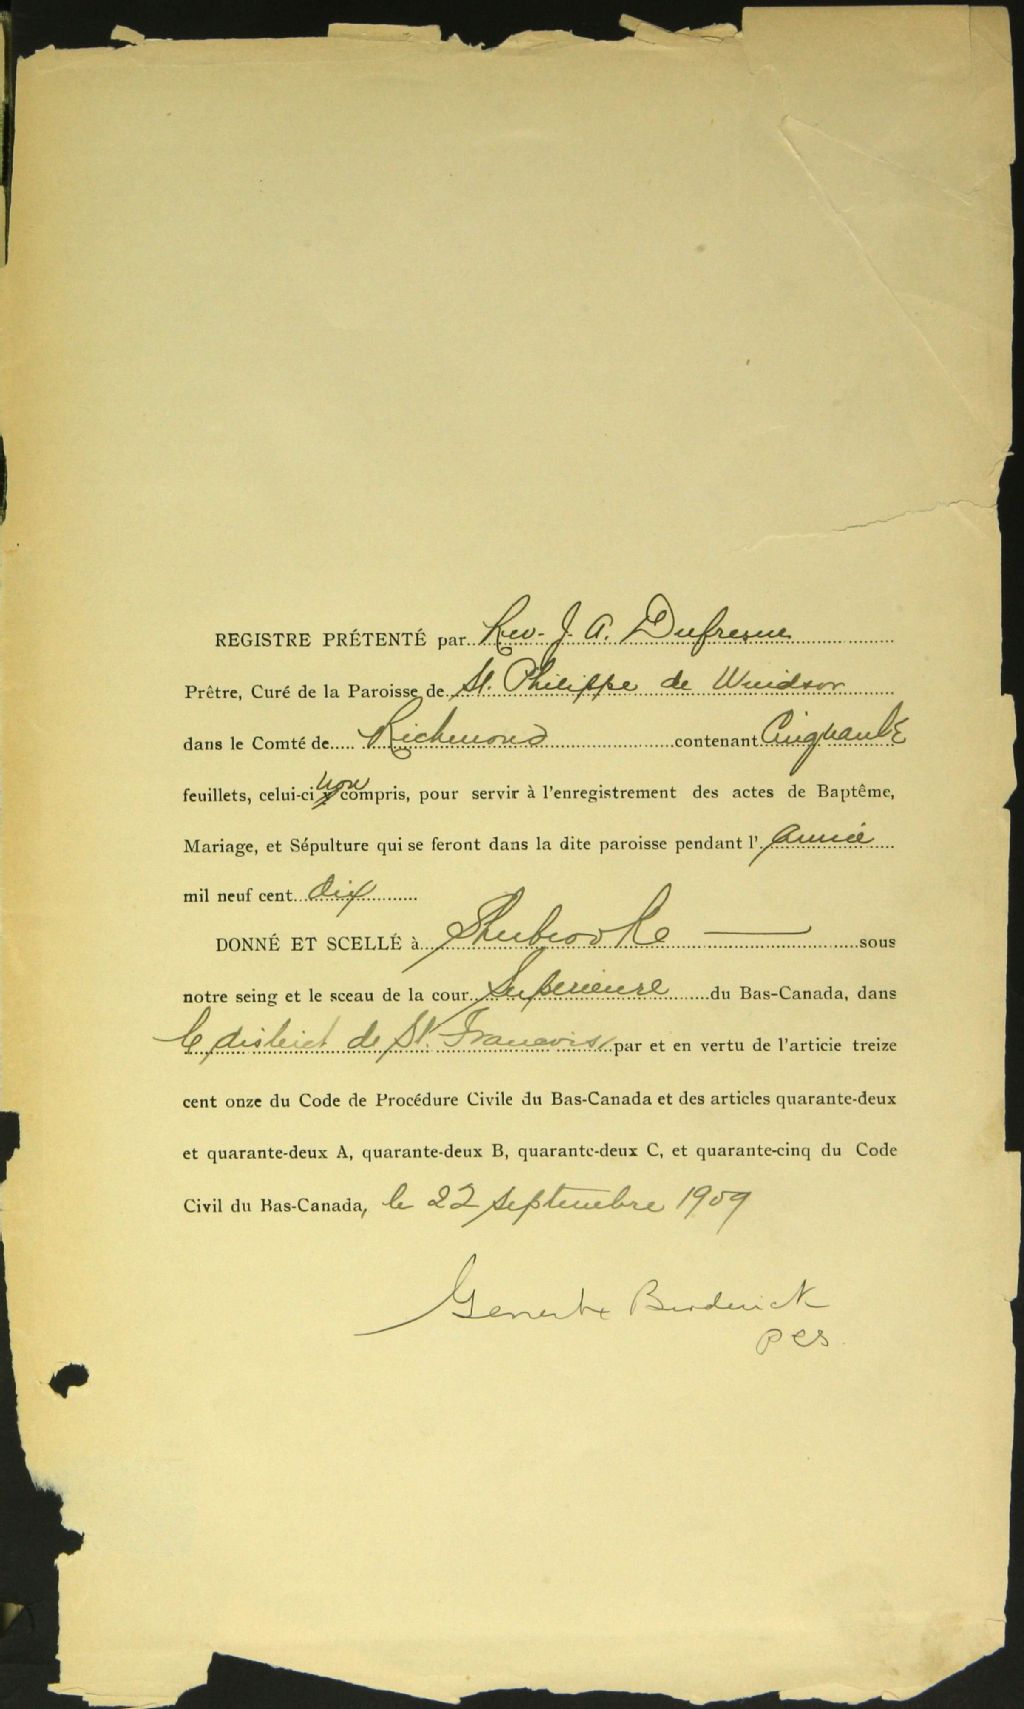 REGISTRE PRÉTENTÉ par Rev. J. A. Dufresne
Prêtre, Curé de la Paroisse de St. Philippe de Windsor
dans le Comté de Richmond contenant Cinquante
feuillets, celui-ci non compris, pour servir à l'enregistrement des actes de Baptême,
Mariage, et Sépulture qui se feront dans la dite paroisse pendant l'année
mil neuf cent dix
DONNÉ ET SCELLÉ à Sherbrooke — sous
notre seing et le sceau de la cour Superieure du Bas-Canada, dans
le district de St. Francois par et en vertu de l'articie treize
cent onze du Code de Procédure Civile du Bas-Canada et des articles quarante-deux
et quarante-deux A, quarante-deux B, quarante-deux C, et quarante-cinq du Code
Civil du Bas-Canada, le 22 septembre 1909
Broderick
PCS